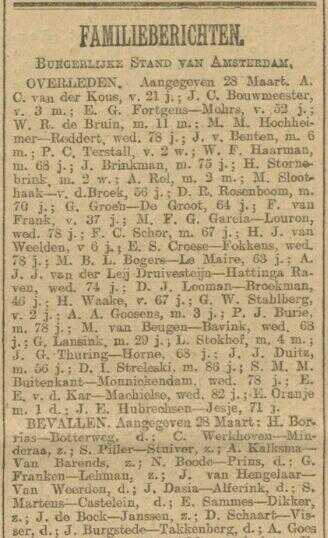 FAMILIEBERICHTEN.
BURGERLIJKE STAND VAN AMSTERDAM.
OVERLEDEN. Aangegeven 28 Maart. A.
C. van der Kous, v. 21 j.; J. C. Bouwmeester,
v. 3 m.; E. G. Fortgens—Mohrs, v. 52 j.;
W. R. de Bruin, m. 11 m.; M. M. Hochhei-
mer—Roddert, wed. 78 j.; J. v. Benten, m. 6
m.; P. C. Terstall, v. 2 w.; W. F. Haarman,
m. 68 j.; J. Brinkman, m. 75 j.; H. Storne-
brink, m. 2 w.; A. Rol, m. 2 m.; M. Sloot-
haak—v. d.Broek, 56 j.; D. R. Rosenboom, m.
70 j.; G. Groen—De Groot, 64 j.; F. van
Frank, v. 37 j.; M. F. G. Garcia—Louron,
wed. 78 j.; F. C. Schor, m. 67 j.; H. J. van
Weelden, v 6 j.; E. S. Croese—Fokkens, wed.
78 j.; M. B. L. Bogers—Le Maire, 63 j.; A.
J. J. van der Leij-Druivesteijn—Hattinga Ra-
ven, wed. 74 j.; D. J. Looman—Broekman,
46 j.; H. Waake, v. 67 j.; G. W. Stahlberg,
v. 2 j.; A. A. Goosens, m. 3 j.; P. J. Burie,
m. 78 j.; M. van Beugen—Bavink, wed. 68
j.; G. Lansink, m. 29 j.; L. Stokhof, m. 4 m.;
J. G. Thuring—Horne, 68 j.; J. J. Duitz,
m. 56 j.; D. I. Streleski, m. 86 j.; S. M. M.
Buitenkant—Monnickendam, wed. 78 j.; E.
E. v. d. Kar—Machielse, wed. 82 j.; E. Oranje
m. 1 d.; J. E. Hubrechsen—Jesje, 71 j.
BEVALLEN. Aangegeven 28 Maart: H. Bor-
rias—Botterweg, d.; C. Werkhoven—Min-
deraa, z.; S. Piller—Stuiver, z.; A. Kalksma—
Van Barends, z.; N. Boode—Prins, d.; G.
Franken—Lehman, z.; J. van Hengelaar—
Van Woerden, d.; J. Dasia—Alferink, d.; S.
Martens—Castelein, d.; E. Sammes—Dikker,
z.; J. de Bock—Janssen, z.; D. Schaart—Vis-
ser, d.; J. Burgstede—Takkenberg, d.; A. Goes